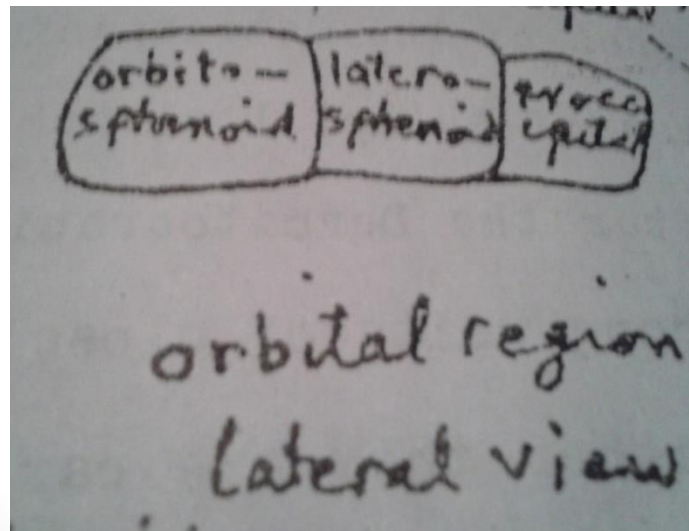 orbito-
sphenoid
latero-
sphenoid
orbital region
lateral view